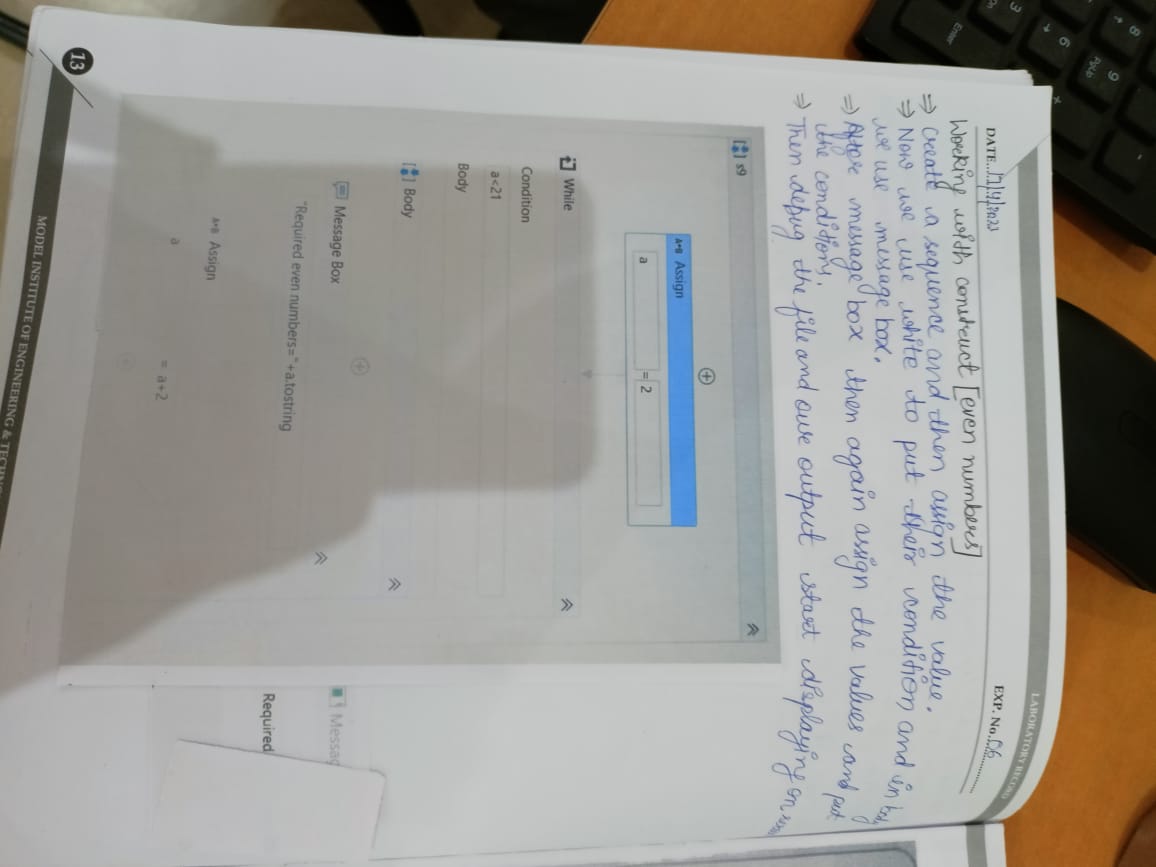 LABORATORY RECORD
DATE...17/4/2023
EXP. No. 06
Working with construct [even numbers]
=> Create a sequence and then assign the value.
=> Now we use white to put their condition and in body
we use message box.
=> After message box then again assign the values and put
the conditions.
=> Then debug the file and our output start displaying on
s9
A+B Assign
a = 2
While
Condition
a<21
Body
Body
Message Box
"Required even numbers="+a.tostring
A+B Assign
a = a+2
Messag
Required
13
MODEL INSTITUTE OF ENGINEERING & TECHNO
3
6
9
PgUp
8
Enter
+